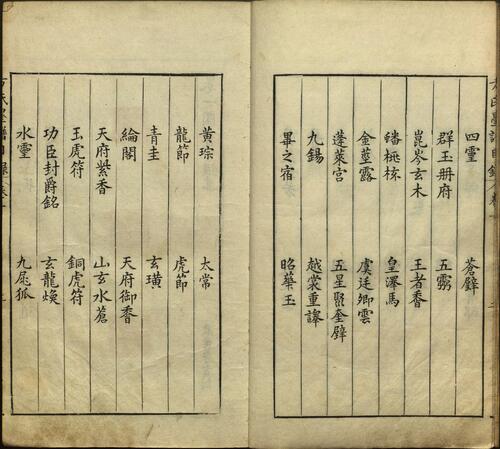 四靈 蒼璧
群玉册府 五雲
崑岑玄木 王者香
蟠桃核 皇澤馬
金莖露 虞廷卿雲
蓬萊宮 五星聚奎璧
九錫 越裳重譯
畢之宿 昭華玉
黃琮 太常
龍節 虎節
青圭 玄璜
綸閣 天府御香
天府紫香 山玄水蒼
玉虎符 銅虎符
功臣封爵銘 玄龍煥
水靈 九尾狐